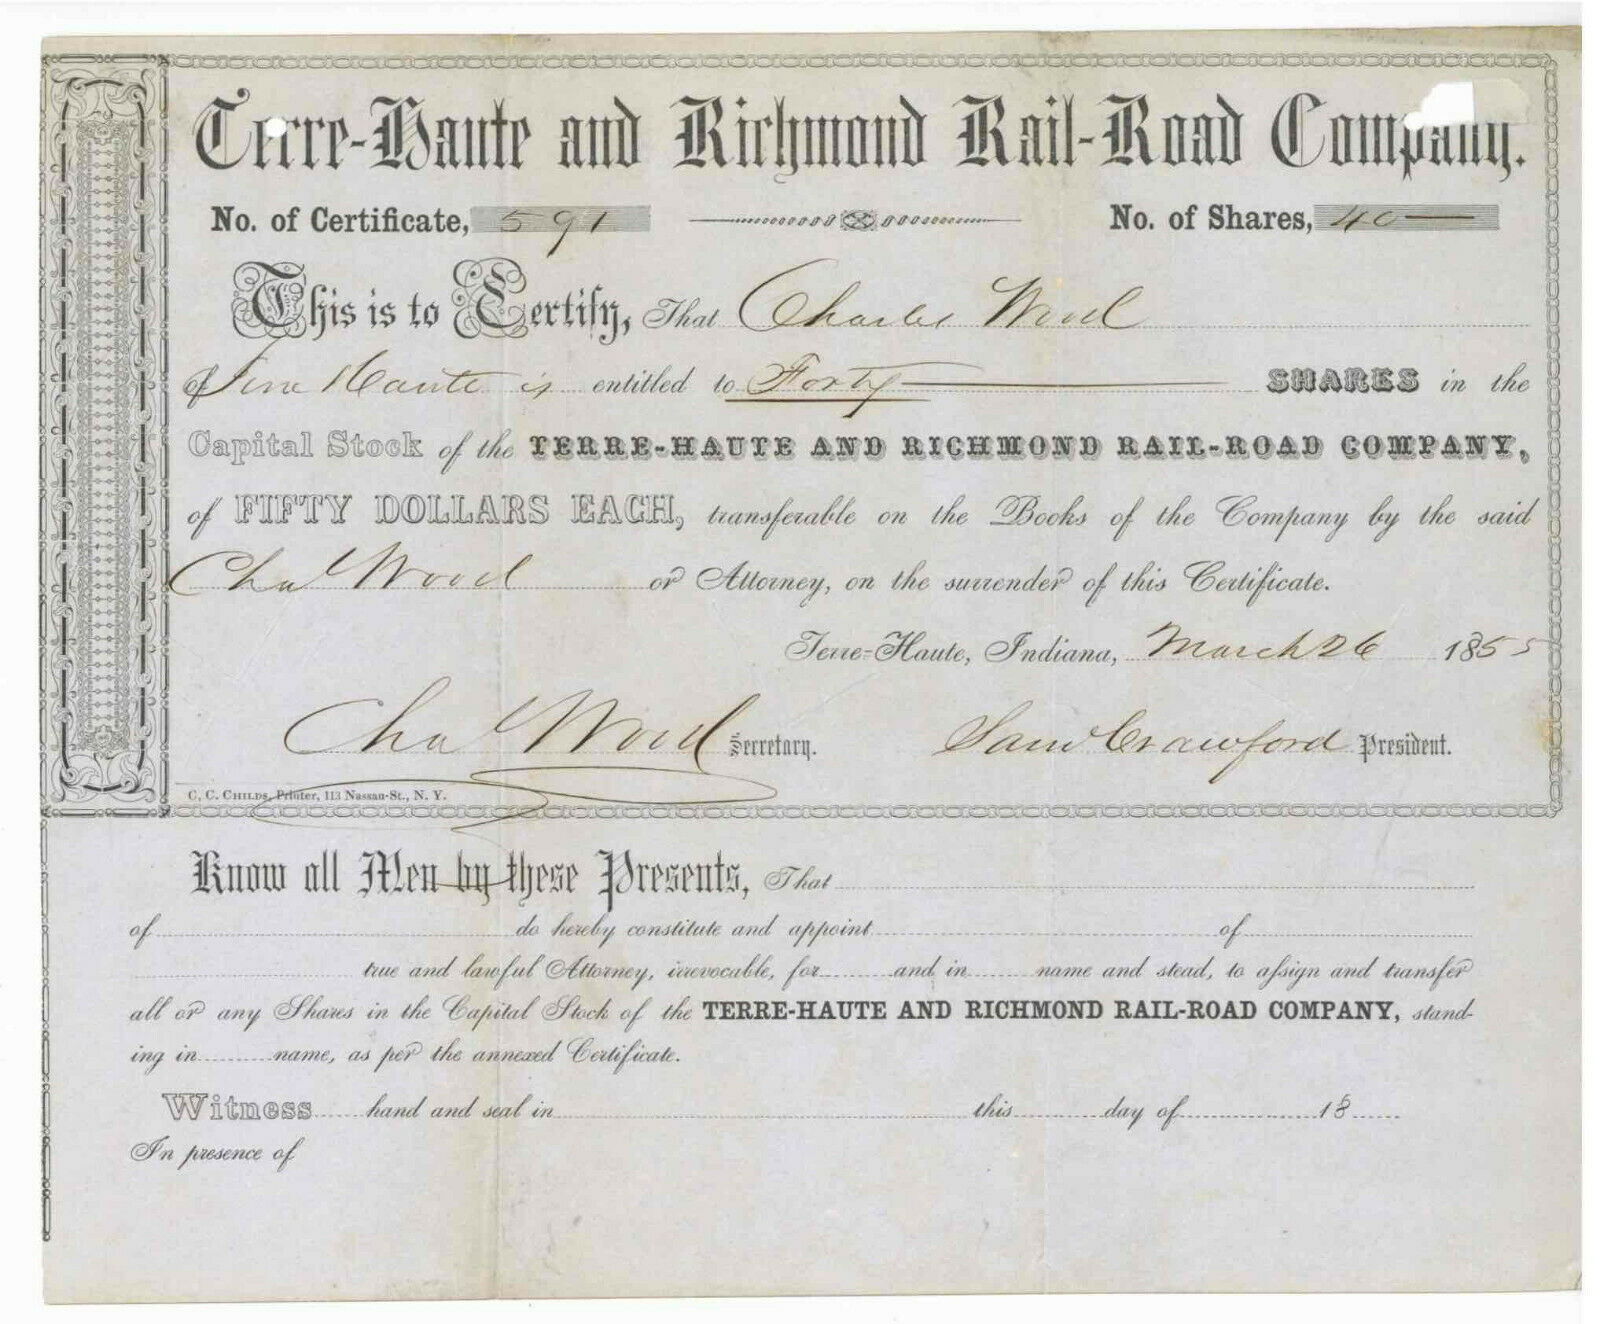 Terre-Haute and Richmond Rail-Road Company.
No. of Certificate, 591 No. of Shares, 40
This is to Certify, That Charles Wood
of Terre Haute is entitled to Forty SHARES in the
Capital Stock of the TERRE-HAUTE AND RICHMOND RAIL-ROAD COMPANY,
of FIFTY DOLLARS EACH, transferable on the Books of the Company by the said
Chas Wood or Attorney, on the surrender of this Certificate.
Terre-Haute, Indiana, March 26 1855
Chas Wood Secretary. Saml Crawford President.
C. C. CHILDS, Printer, 113 Nassau-St., N. Y.
Know all Men by these Presents, That
of do hereby constitute and appoint of
true and lawful Attorney, irrevocable, for and in name and stead, to assign and transfer
all or any Shares in the Capital Stock of the TERRE-HAUTE AND RICHMOND RAIL-ROAD COMPANY, stand-
ing in name, as per the annexed Certificate.
Witness hand and seal in this day of 18
In presence of